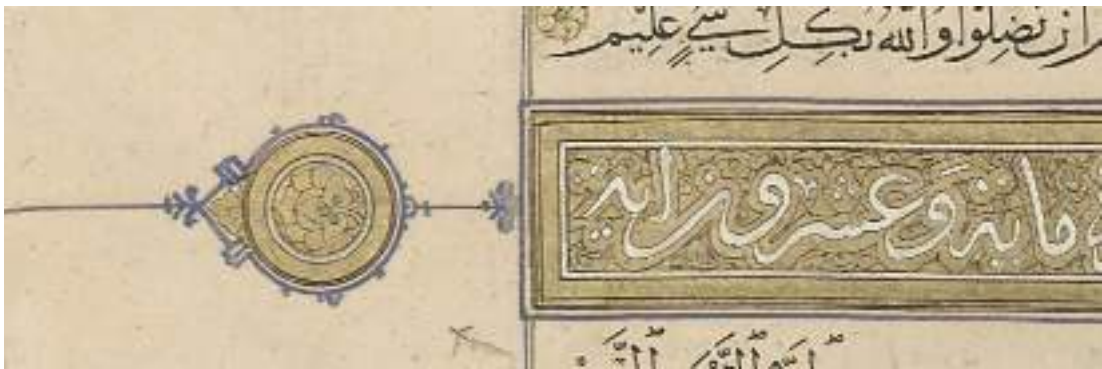 ان تضلوا والله بكل شيء عليم
ماية وعشرون اية